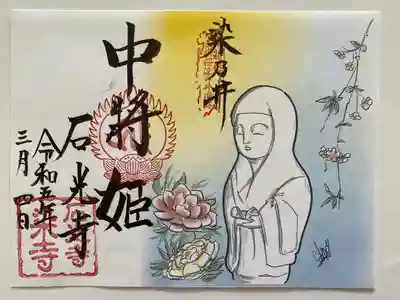 染乃井
中将姫
石光寺
令和五年
三月四日